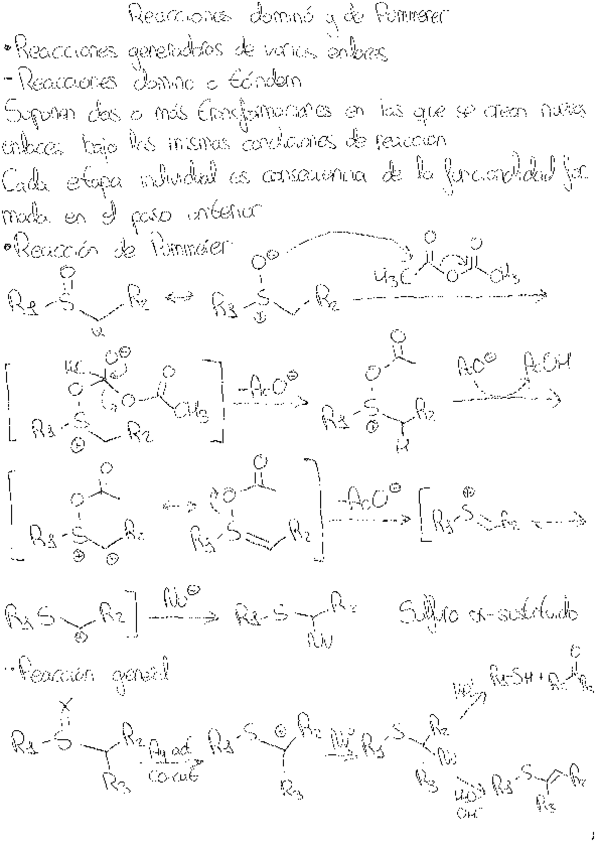 Reacciones dominó y de Pummerer
• Reacciones generadoras de varios enlaces
- Reacciones domino o tándem
Suponen dos o más transformaciones en las que se crean nuevos
enlaces bajo las mismas condiciones de reacción
Cada etapa individual es consecuencia de la funcionalidad for
mada en el paso anterior
• Reacción de Pummerer
O O⊖ O O
R1 S R2 ↔ R1 S⊕ R2 H3C O CH3
α
H3C O⊖ O O O
R1 S⊕ R2 O CH3 -AcO⊖ R1 S⊕ R2 H AcO⊖ AcOH
R1 S⊕ ⊖ R2 ↔ R1 S R2 -AcO⊖ R1 S⊕ R2 ↔
R1 S ⊕ R2 Nu⊖ R1 S R2 Nu Sulfuro α-sustituido
- Reacción general
R1-SH + R2 O R3
X
R1 S R2 R3 R1 S ⊕ R2 R3 Nu⊖ R1 S R2 Nu R3
H2O OH⁻ R1 S R2 R3